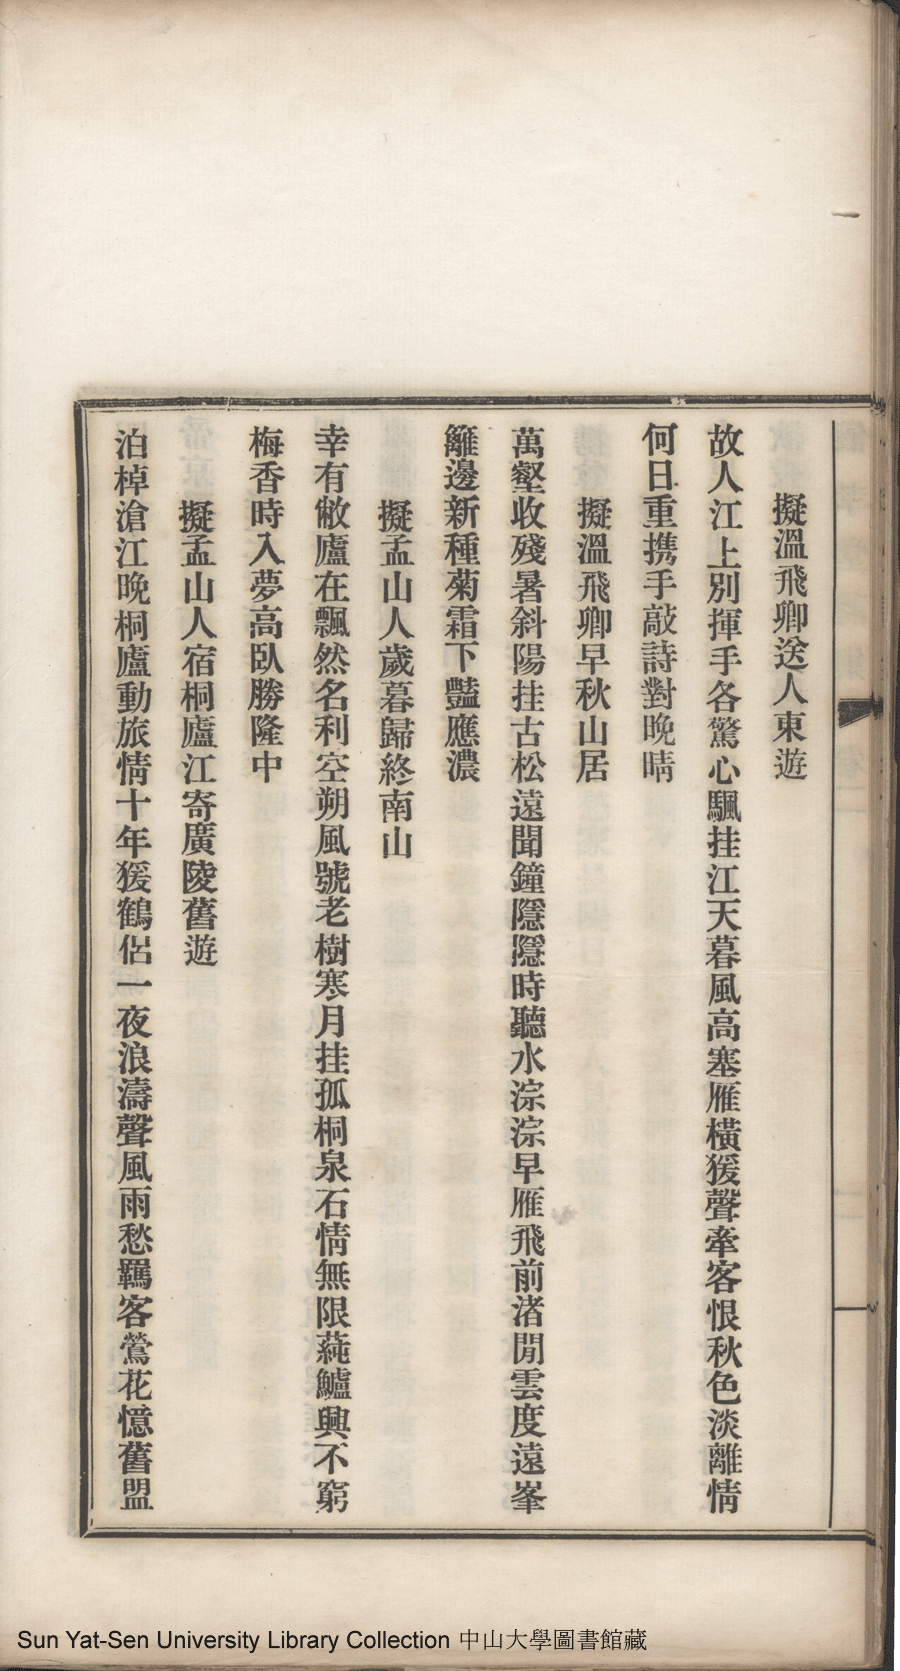 擬溫飛卿送人東遊
故人江上別揮手各驚心颿挂江天暮風高塞雁橫猨聲牽客恨秋色淡離情
何日重携手敲詩對晚晴
擬溫飛卿早秋山居
萬壑收殘暑斜陽挂古松遠聞鐘隱隱時聽水淙淙早雁飛前渚閒雲度遠峯
籬邊新種菊霜下豔應濃
擬孟山人歲暮歸終南山
幸有敝廬在飄然名利空朔風號老樹寒月挂孤桐泉石情無限蒓鱸興不窮
梅香時入夢高臥勝隆中
擬孟山人宿桐廬江寄廣陵舊遊
泊棹滄江晚桐廬動旅情十年猨鶴侶一夜浪濤聲風雨愁羈客鶯花憶舊盟
Sun Yat-Sen University Library Collection 中山大學圖書館藏